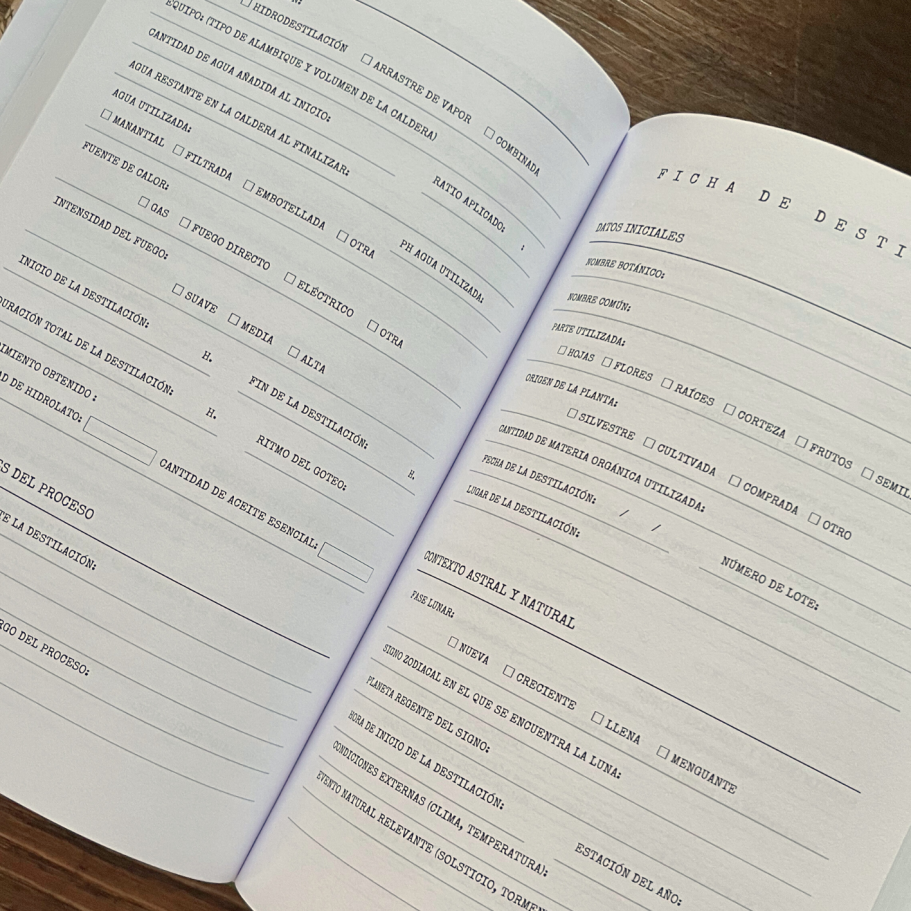 HIDRODESTILACIÓN ARRASTRE DE VAPOR COMBINADA
EQUIPO: (TIPO DE ALAMBIQUE Y VOLUMEN DE LA CALDERA)
CANTIDAD DE AGUA AÑADIDA AL INICIO:
AGUA RESTANTE EN LA CALDERA AL FINALIZAR: RATIO APLICADO: :
AGUA UTILIZADA:
MANANTIAL FILTRADA EMBOTELLADA OTRA PH AGUA UTILIZADA:
FUENTE DE CALOR:
GAS FUEGO DIRECTO ELÉCTRICO OTRA
INTENSIDAD DEL FUEGO:
SUAVE MEDIA ALTA
INICIO DE LA DESTILACIÓN: H. FIN DE LA DESTILACIÓN: H.
DURACIÓN TOTAL DE LA DESTILACIÓN: H. RITMO DEL GOTEO:
OBTENIDO :
DE HIDROLATO: CANTIDAD DE ACEITE ESENCIAL:
DEL PROCESO
LA DESTILACIÓN:
DEL PROCESO:
FICHA DE DESTI
DATOS INICIALES
NOMBRE BOTÁNICO:
NOMBRE COMÚN:
PARTE UTILIZADA:
HOJAS FLORES RAÍCES CORTEZA FRUTOS SEMIL
ORIGEN DE LA PLANTA:
SILVESTRE CULTIVADA COMPRADA OTRO
CANTIDAD DE MATERIA ORGÁNICA UTILIZADA:
FECHA DE LA DESTILACIÓN: / / NÚMERO DE LOTE:
LUGAR DE LA DESTILACIÓN:
CONTEXTO ASTRAL Y NATURAL
FASE LUNAR:
NUEVA CRECIENTE LLENA MENGUANTE
SIGNO ZODIACAL EN EL QUE SE ENCUENTRA LA LUNA:
PLANETA REGENTE DEL SIGNO:
HORA DE INICIO DE LA DESTILACIÓN: ESTACIÓN DEL AÑO:
CONDICIONES EXTERNAS (CLIMA, TEMPERATURA):
EVENTO NATURAL RELEVANTE (SOLSTICIO, TORMEN